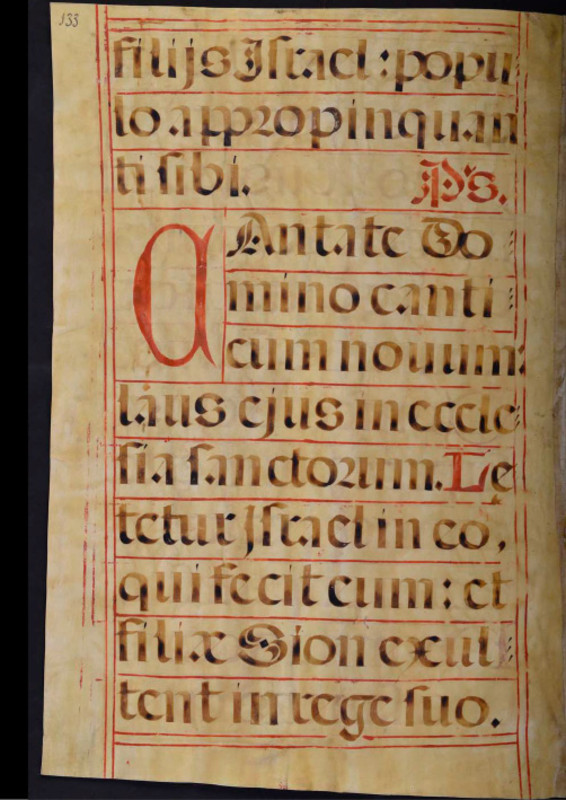 133
filijs Israel: popu
lo appropinquan
ti sibi. Ps.
CAntate Do
mino canti
cum nouum:
laus ejus in eccle
sia sanctorum. Le
tetur Israel in eo,
qui fecit eum: et
filiæ Sion exul
tent in rege suo.